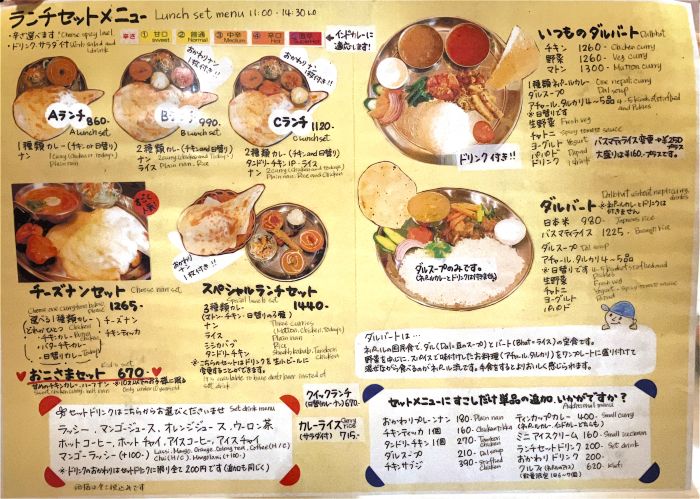 ランチセットメニュー Lunch set menu 11:00 - 14:30 LO
・辛さ選べます Choose spicy level
・ドリンク、サラダ付 With salad and drink
辛さ 1 甘口 Sweet 2 普通 Normal 3 中辛 Medium 4 辛口 Hot 5 激辛 Super Hot
※インドカレーに適応します!
おかわりナン1枚付き!!
おかわりナン1枚付き!!
Aランチ 860-
A lunch set
1種類カレー(チキンor日替り)
ナン
Plain nan
Bランチ 990-
B lunch set
2種類カレー(チキンand日替り)
ナン ライス
Plain nan, Rice
Cランチ 1120-
C lunch set
2種類カレー(チキンand日替り)
タンドリーチキン1P・ライス
ナン
Plain nan, Rice and Chicken
すごい人気
チーズナンセット Cheese nan set
1265-
Choose one curry from below please
選べる1種類カレー
どれかひとつ
・チキンカレー
・マトンカレー
・キーマカレー
・日替りカレー
チーズナン
チキンティッカ
おかわりナン1枚付き!!
スペシャルランチセット
Special lunch set
1440-
3種類カレー
(マトン・チキン・日替りの3種)
Three curries
(Mutton, Chicken, Today's)
ナン Plain nan
ライス Rice
シシカバブ
タンドリチキン
Sheekh kabab, Tandoori Chicken
※こちらのセットはドリンクを生小ビールに変更することができます。
おこさまセット 670-
Kid's set
甘めのチキンカレー、ハーフナン
Sweet chicken curry, half nan
※10才以下のお子様に限る
Only under 10 years old
※セットドリンクはこちらからお選びくださいませ Set drink menu
ラッシー、マンゴージュース、オレンジジュース、ウーロン茶
ホットコーヒー、ホットチャイ、アイスコーヒー、アイスチャイ
マンゴーラッシー(+100-)
Lassi, Mango, Orange, Oolong tea, Coffee (H/C)
Chai (H/C), Mango lassi (+100-)
※ドリンクのおかわりはセットドリンクに限り全て200円です(追加も同じく)
価格は全て税込みです
クイックランチ
(日替りカレーナン) 670-
カレーライス
(サラダ付) 715-
いつものダルバート Dalbhat
チキン 1260- Chicken curry
野菜 1260- Veg curry
マトン 1300- Mutton curry
1種類ネパールカレー One nepali curry
ダルスープ Dal soup
アチャール、タルカリ4〜5品
※日替りです
4-5 kinds of stirfried and Pickles
生野菜 Fresh veg
チャトニ Spicy tomato sauce
ヨーグルト Yogurt
パパド Papad
ドリンク Drink
バスマティライス変更+¥250プラス
大盛りは¥160-プラスです。
ドリンク付き!!
ダルバート
Dalbhat without nepali curry, drinks
※ネパールカレーとドリンクは付きません
日本米 980- Japanese rice
バスマティライス 1225- Basmati rice
ダルスープ Dal soup
アチャール、タルカリ4〜5品
※日替りです
4-5 kinds of stirfried and pickles
生野菜 Fresh veg
チャトニ Spicy tomato sauce
ヨーグルト Yogurt
パパド Papad
ダルスープのみです。
(ネパールカレーとドリンクは付きません)
ダルバートは…
ネパールの国民食で、ダル(Dal=豆のスープ)とバート(Bhat=ライス)の定食です。
野菜を中心に、スパイスで味付けしたお料理(アチャール、タルカリ)をワンプレートに盛り付けて
混ぜながら食べるのがネパール流です。手食をするとよりおいしく感じられます。
セットメニューにすこしだけ単品の追加、いかがですか?
Additional menu
おかわりプレーンナン 180- Plain nan
チキンティッカ 1個 160- Chicken tikka
タンドリーチキン 1個 270- Tandoori Chicken
ダルスープ 210- Dal soup
チキンサデコ 390-
ティンカップカレー 400- Small curry
(ネパールカレー、インドカレーどちらも)
ミニアイスクリーム 160- Small icecream
ランチセットドリンク 200- Set drink
おかわりドリンク 200-
クルフィ(ネパールアイス) 620- Kulfi